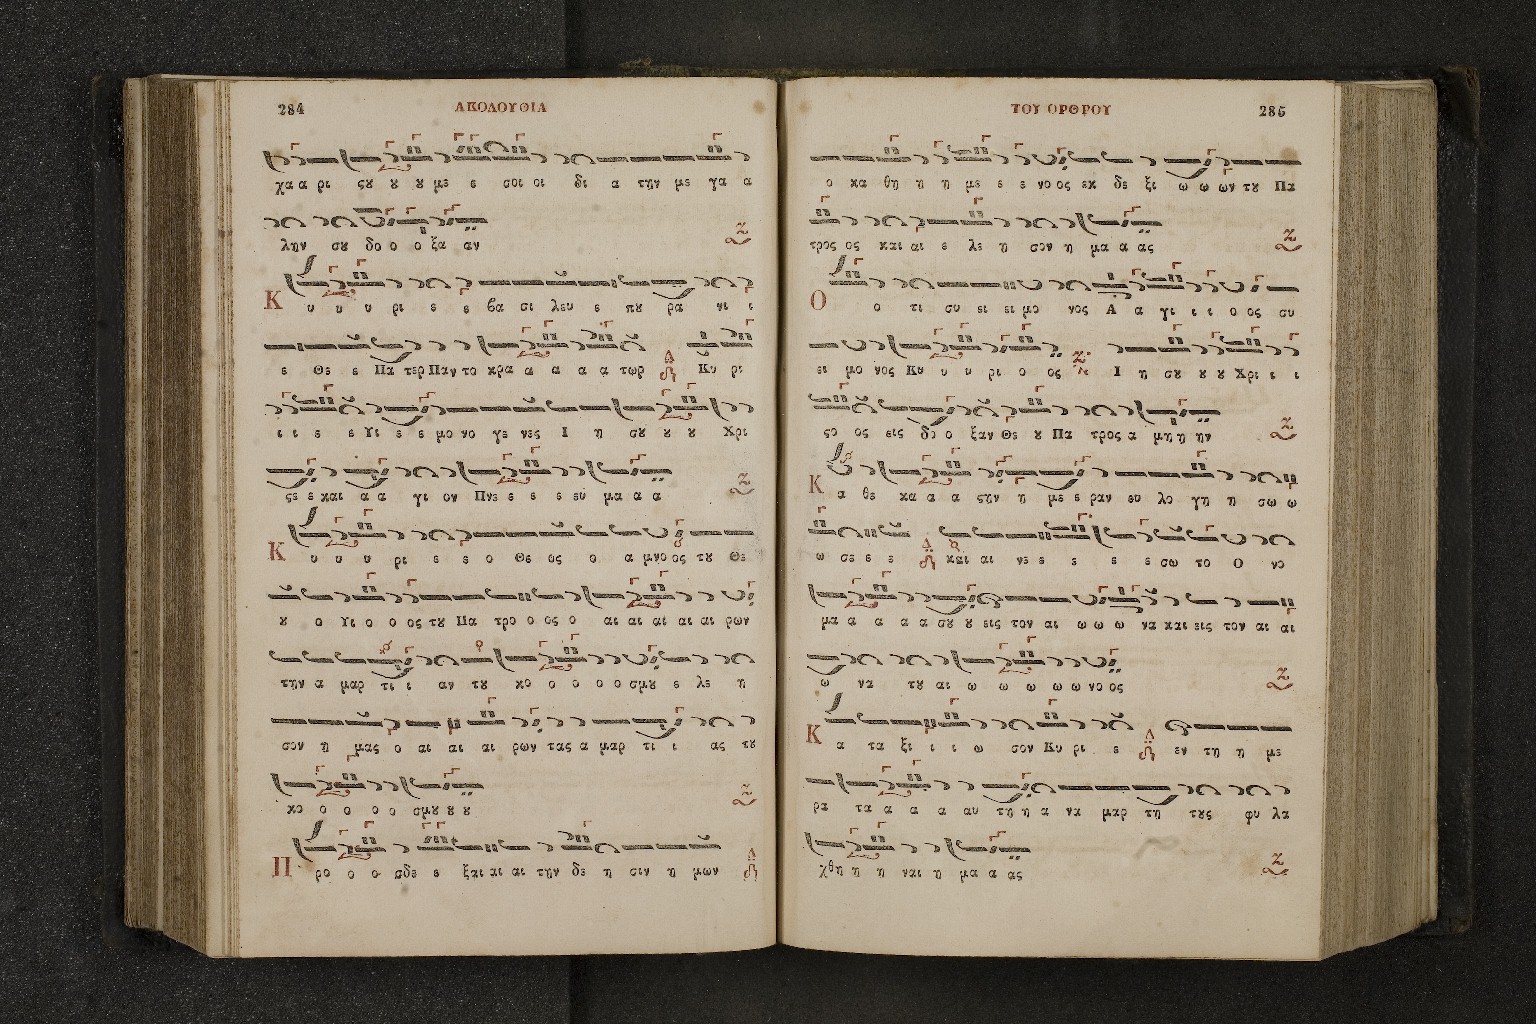 284 ΑΚΟΛΟΥΘΙΑ
χα α ρι ςȣ ȣ ȣ με ε σοι οι δι α την με γα α
λην σȣ δο ο ο ξα αν
Κ υ υ υ ρι ε ε βα σι λευ ε πȣ ρα νι ι
ε Θε ε Πα τερ Παν το κρα α α α α τωρ Κυ ρι
ι ι ε ε Υι ε ε μο νο γε νες Ι η σȣ ȣ ȣ Χρι
ςε ε και α α γι ον Πνε ε ε ε ευ μα α α
Κ υ υ υ ρι ε ε ο Θε ος ο α μνο ος τȣ Θε
ȣ ο Υι ο ο ος τȣ Πα τρο ο ος ο αι αι αι αι αι ρων
την α μαρ τι ι αν τȣ κο ο ο ο ο σμȣ ε λε η
σον η μας ο αι αι αι ρων τας α μαρ τι ι ας τȣ
κο ο ο ο ο σμȣ ȣ ȣ
Π ρο ο ο σδε ε ξαι αι αι την δε η σιν η μων
ΤΟΥ ΟΡΘΡΟΥ 285
ο κα θη η η με ε ε νο ος εκ δε ξι ω ω ων τȣ Πα
τρος ος και αι ε λε η σον η μα α ας
Ο ο τι συ ει ει μο νος Α α γι ι ι ο ος συ
ει μο νος Κυ υ υ ρι ο ος Ι η σȣ ȣ ȣ Χρι ι ι
ςο ος εις δο ο ξαν Θε ȣ Πα τρος α μη η ην
Κ α θε κα α α ςην η με ε ραν ευ λο γη η σω ω
ω σε ε ε και αι νε ε ε ε ε σω το Ο νο
μα α α α α σȣ ȣ εις τον αι ω ω ω να και εις τον αι αι
ω να τȣ αι ω ω ω ω ω νο ος
Κ α τα ξι ι ι ω σον Κυ ρι ε εν τη η με
ρα τα α α α αυ τη η α να μαρ τη τȣς φυ λα
χθη η η ναι η μα α ας